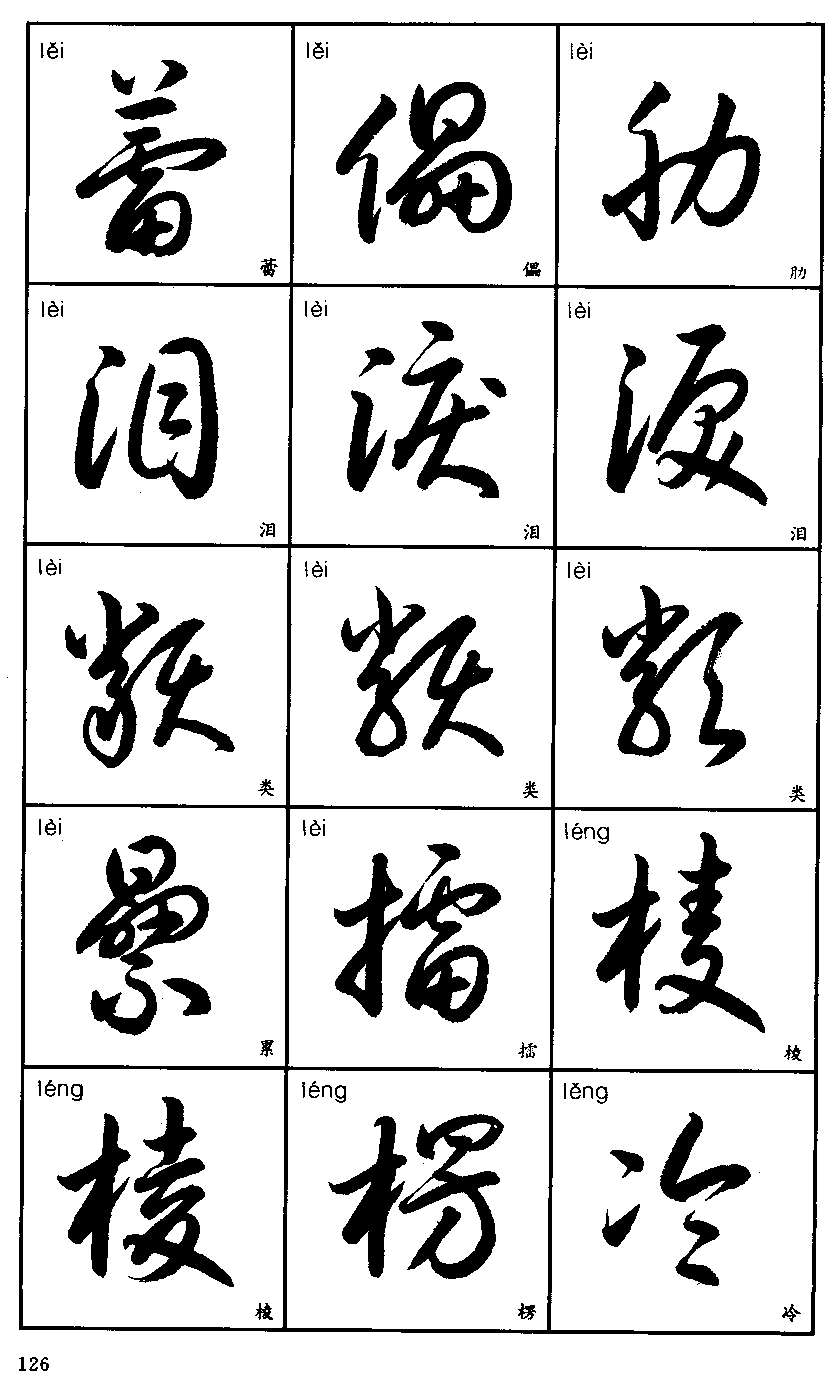 lěi lěi lèi
蕾 儡 肋
蕾 儡 肋
lèi lèi lèi
泪 淚 淚
泪 泪 泪
lèi lèi lèi
類 類 類
类 类 类
lèi lèi léng
纍 擂 棱
累 擂 棱
léng léng lěng
棱 楞 冷
棱 楞 冷
126